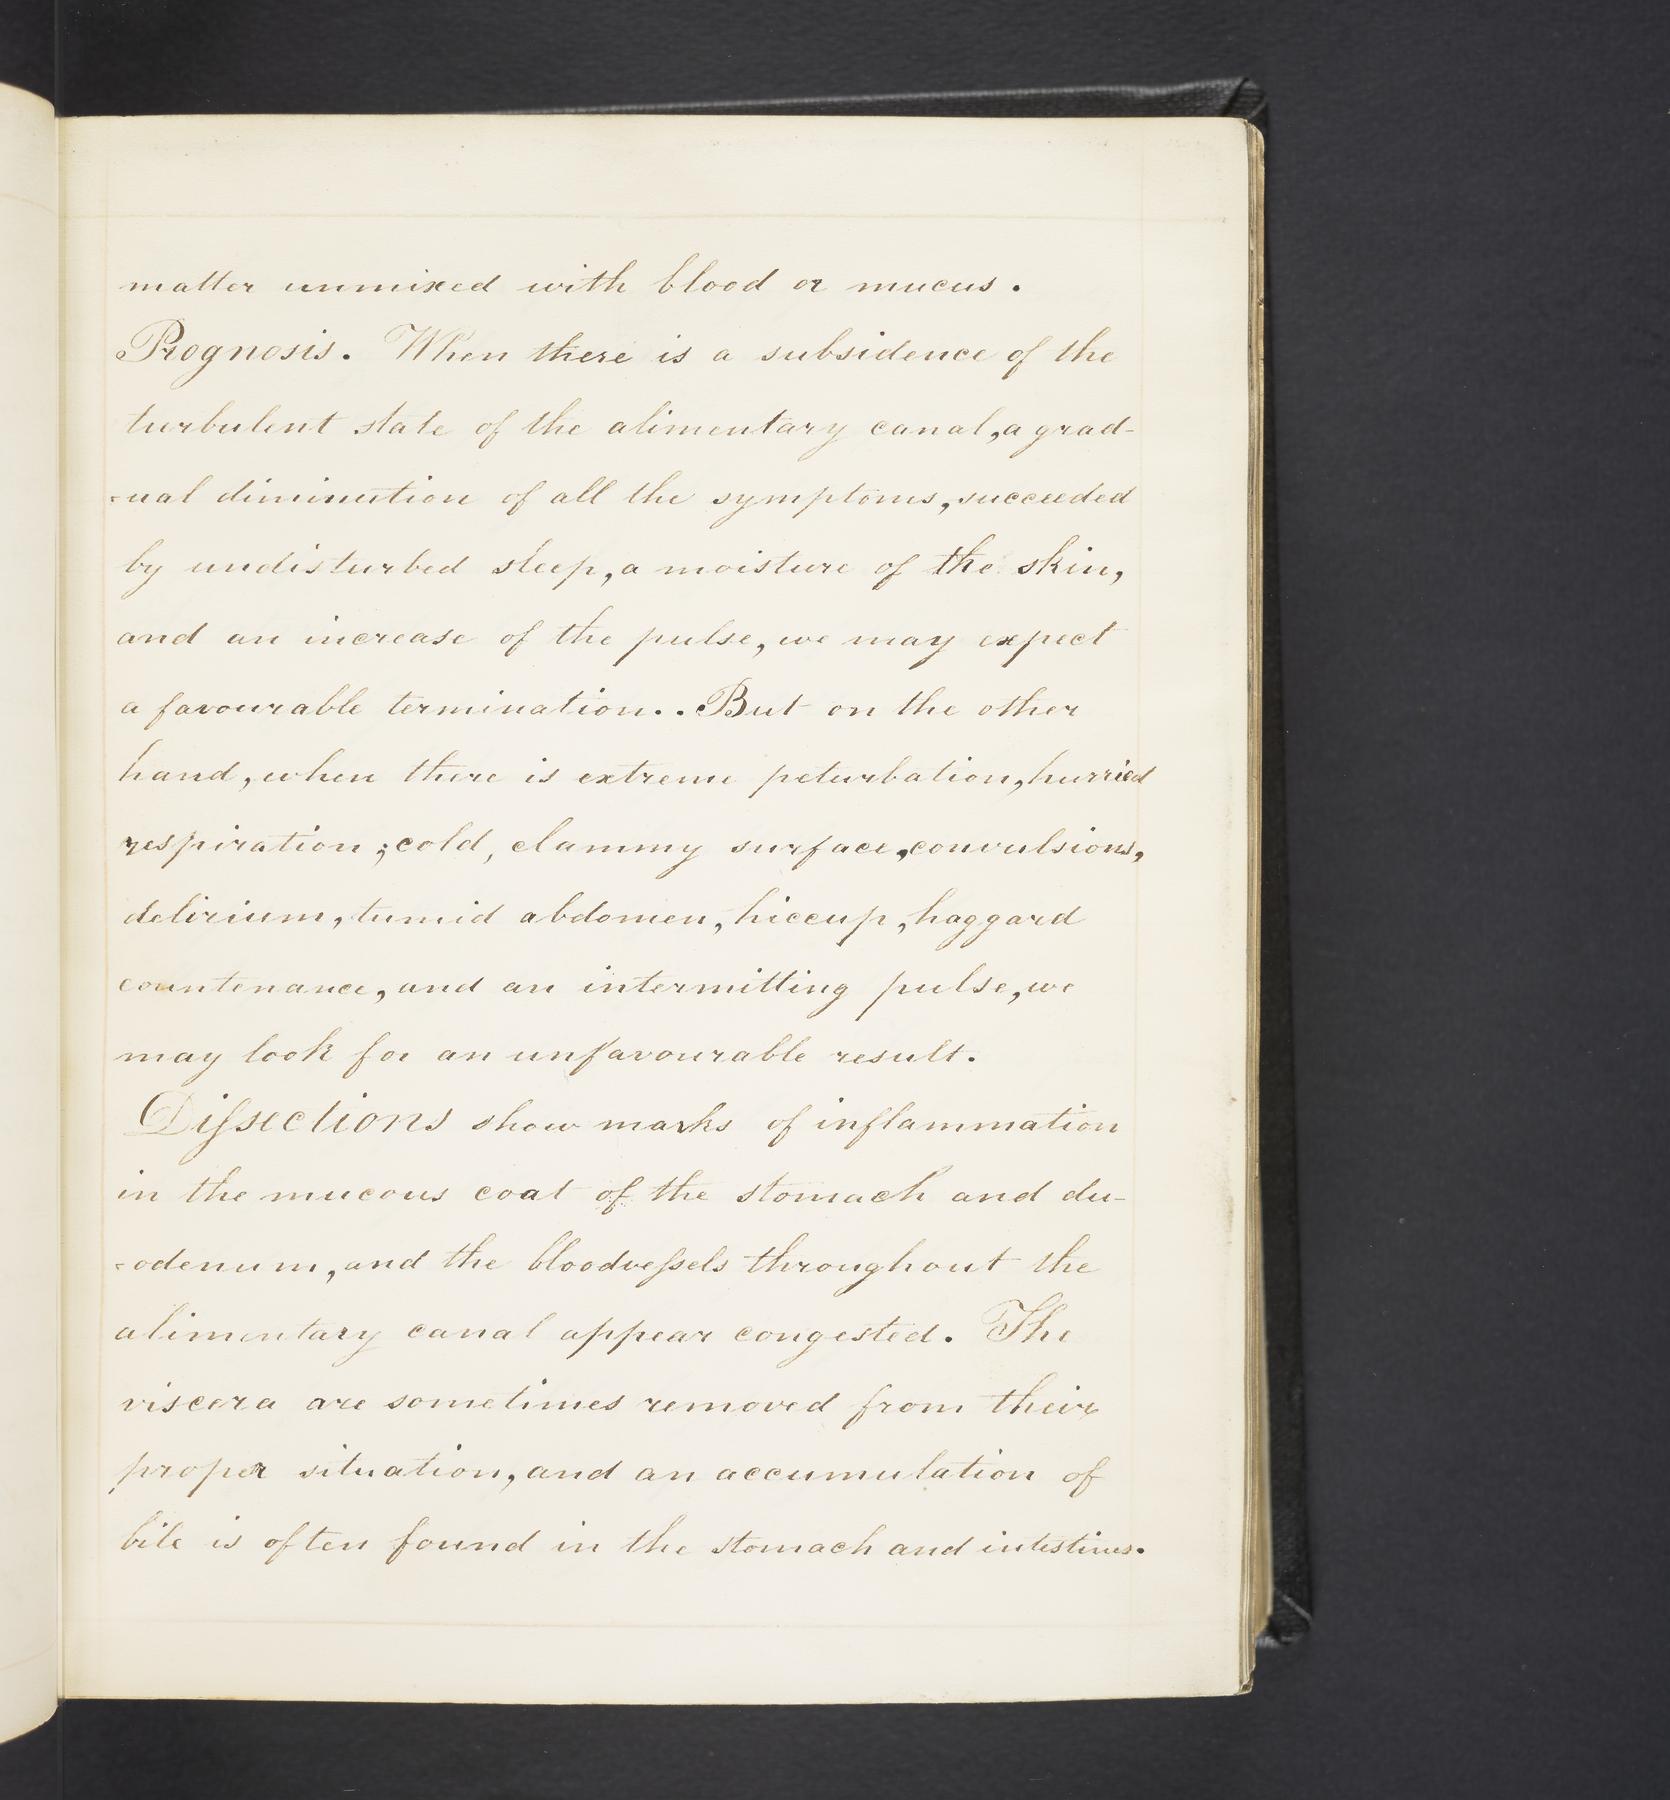 matter unmixed with blood or mucus.
Prognosis. When there is a subsidence of the
turbulent state of the alimentary canal, a grad-
-ual diminution of all the symptoms, succeeded
by undisturbed sleep, a moisture of the skin,
and an increase of the pulse, we may expect
a favourable termination.. But on the other
hand, when there is extreme peturbation, hurried
respiration; cold, clammy surface, convulsions,
delirium, tumid abdomen, hiccup, haggard
countenance, and an intermitting pulse, we
may look for an unfavourable result.
Difsections show marks of inflammation
in the mucous coat of the stomach and du-
-odenum, and the bloodvefsels throughout the
alimentary canal appear congested. The
viscera are sometimes removed from their
proper situation, and an accumulation of
bile is often found in the stomach and intestines.